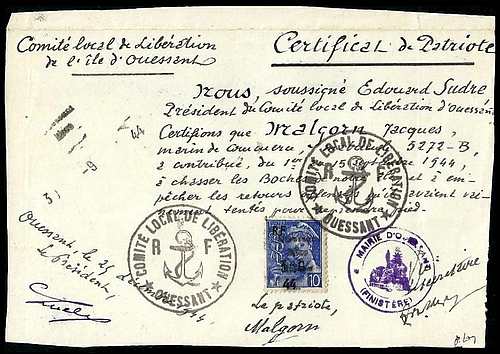 Comité local de Libération
de l'île d'Ouessant
Certificat de Patriote
Nous, soussigné Edouard Sudre
Président du Comité local de Libération d'Ouessant
Certifions que Malgorn Jacques,
marin de commerce, 5272-B
a contribué, du 1er 15 Septembre 1944,
à chasser les Boches notre et à em-
pêcher les retours
tentés pour reprendre pied.
44
Ouessant, le 25
Le Président,
COMITÉ LOCAL DE LIBÉRATION
R F
OUESSANT
COMITÉ LOCAL DE LIBÉRATION
R
OUESSANT
RF
44
10
MAIRIE D'OUESSANT
(FINISTÈRE)
Le patriote,
Malgorn
secrétaire